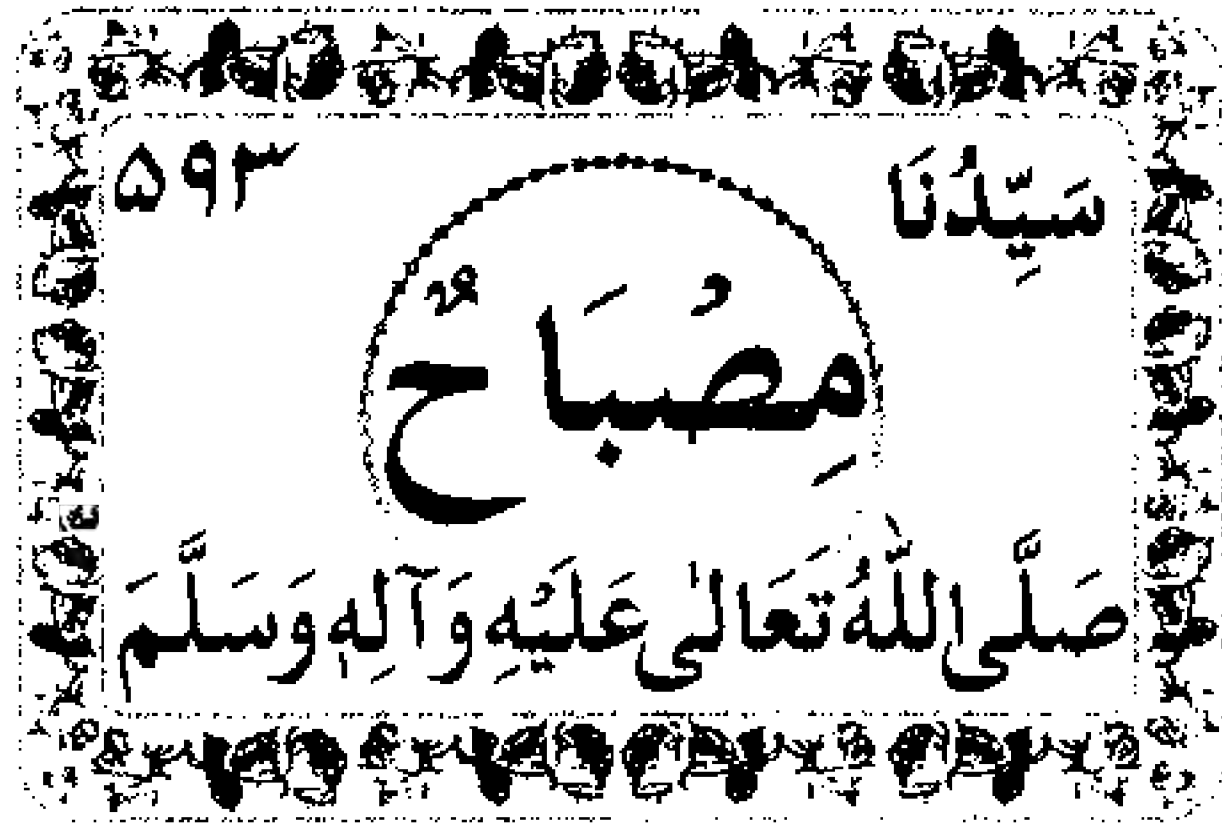 سَيِّدُنَا ۵۹۳
مِصْبَاحٌ
صَلَّی اللّٰهُ تَعَالٰی عَلَیْهِ وَآلِهٖ وَسَلَّمَ